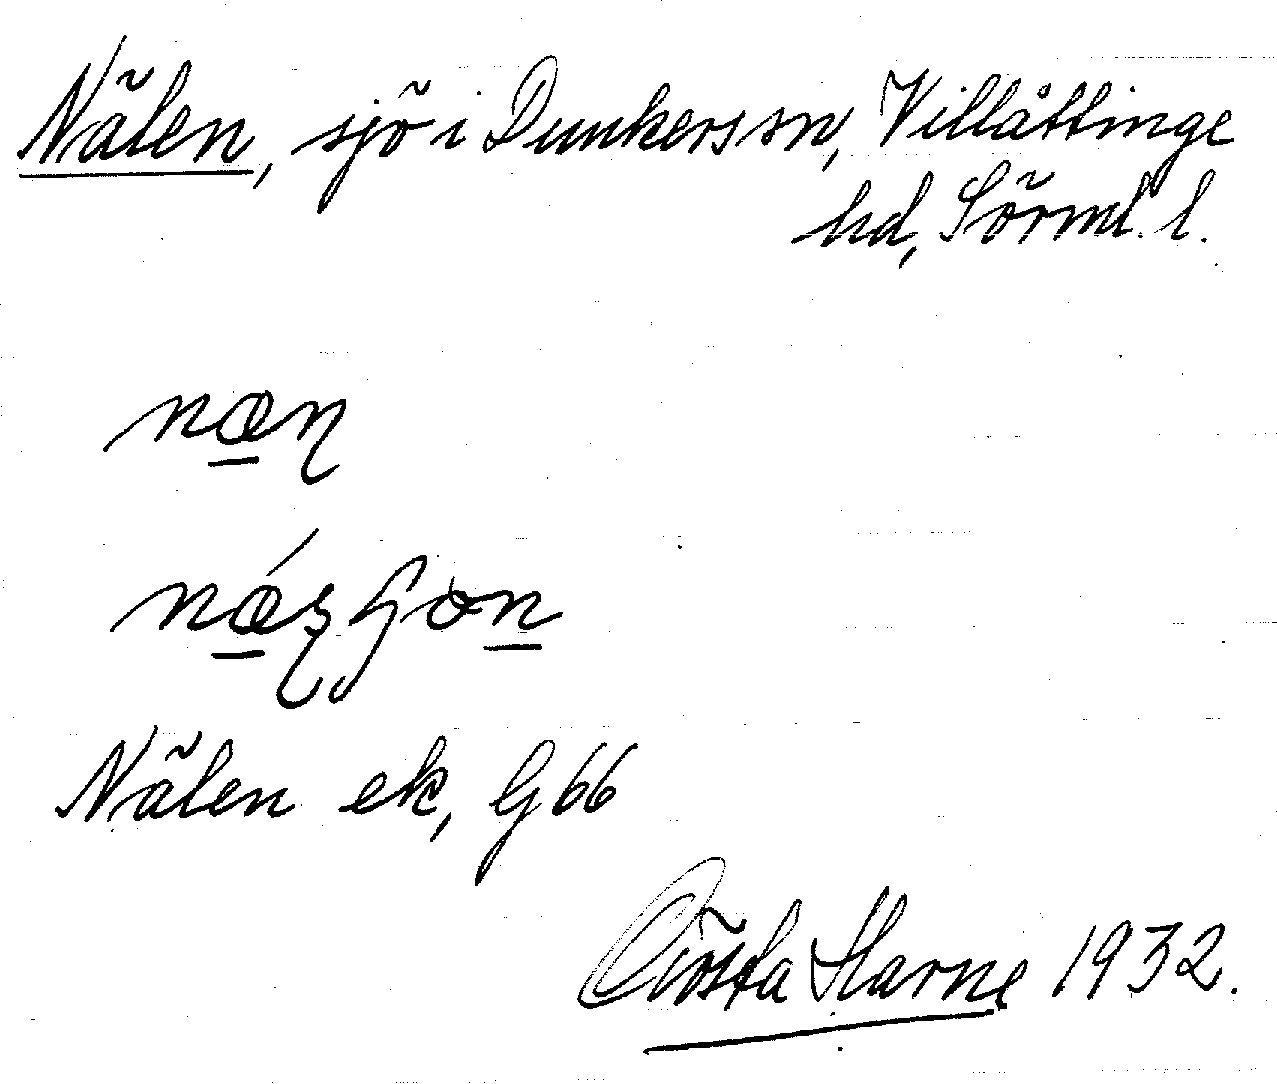 Nälen, sjö i Dunkers sn, Villåttinge
hd, Sörml. l.
Nälen ek, G 66
Gösta Harne 1932.